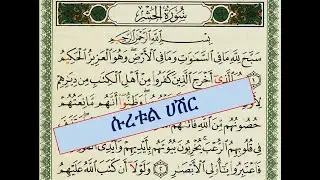 سُورَةُ الحَشْرِ
بِسْمِ اللَّهِ الرَّحْمَٰنِ الرَّحِيمِ
سَبَّحَ لِلَّهِ مَا فِي السَّمَٰوَٰتِ وَمَا فِي الْأَرْضِ وَهُوَ الْعَزِيزُ الْحَكِيمُ ١
الَّذِي أَخْرَجَ الَّذِينَ كَفَرُوا مِنْ أَهْلِ الْكِتَٰبِ مِن دِيَٰرِهِمْ
وَظَنُّوا أَنَّهُم مَّانِعَتُهُمْ
ሱረቱል ሀሽር
حُصُونُهُم مِّنَ اللَّهِ
فِي قُلُوبِهِمُ الرُّعْبَ يُخْرِبُونَ بُيُوتَهُم بِأَيْدِيهِمْ وَأَيْدِي
فَاعْتَبِرُوا يَٰأُولِي الْأَبْصَٰرِ ٢ وَلَوْلَا أَن كَتَبَ اللَّهُ عَلَيْهِمُ